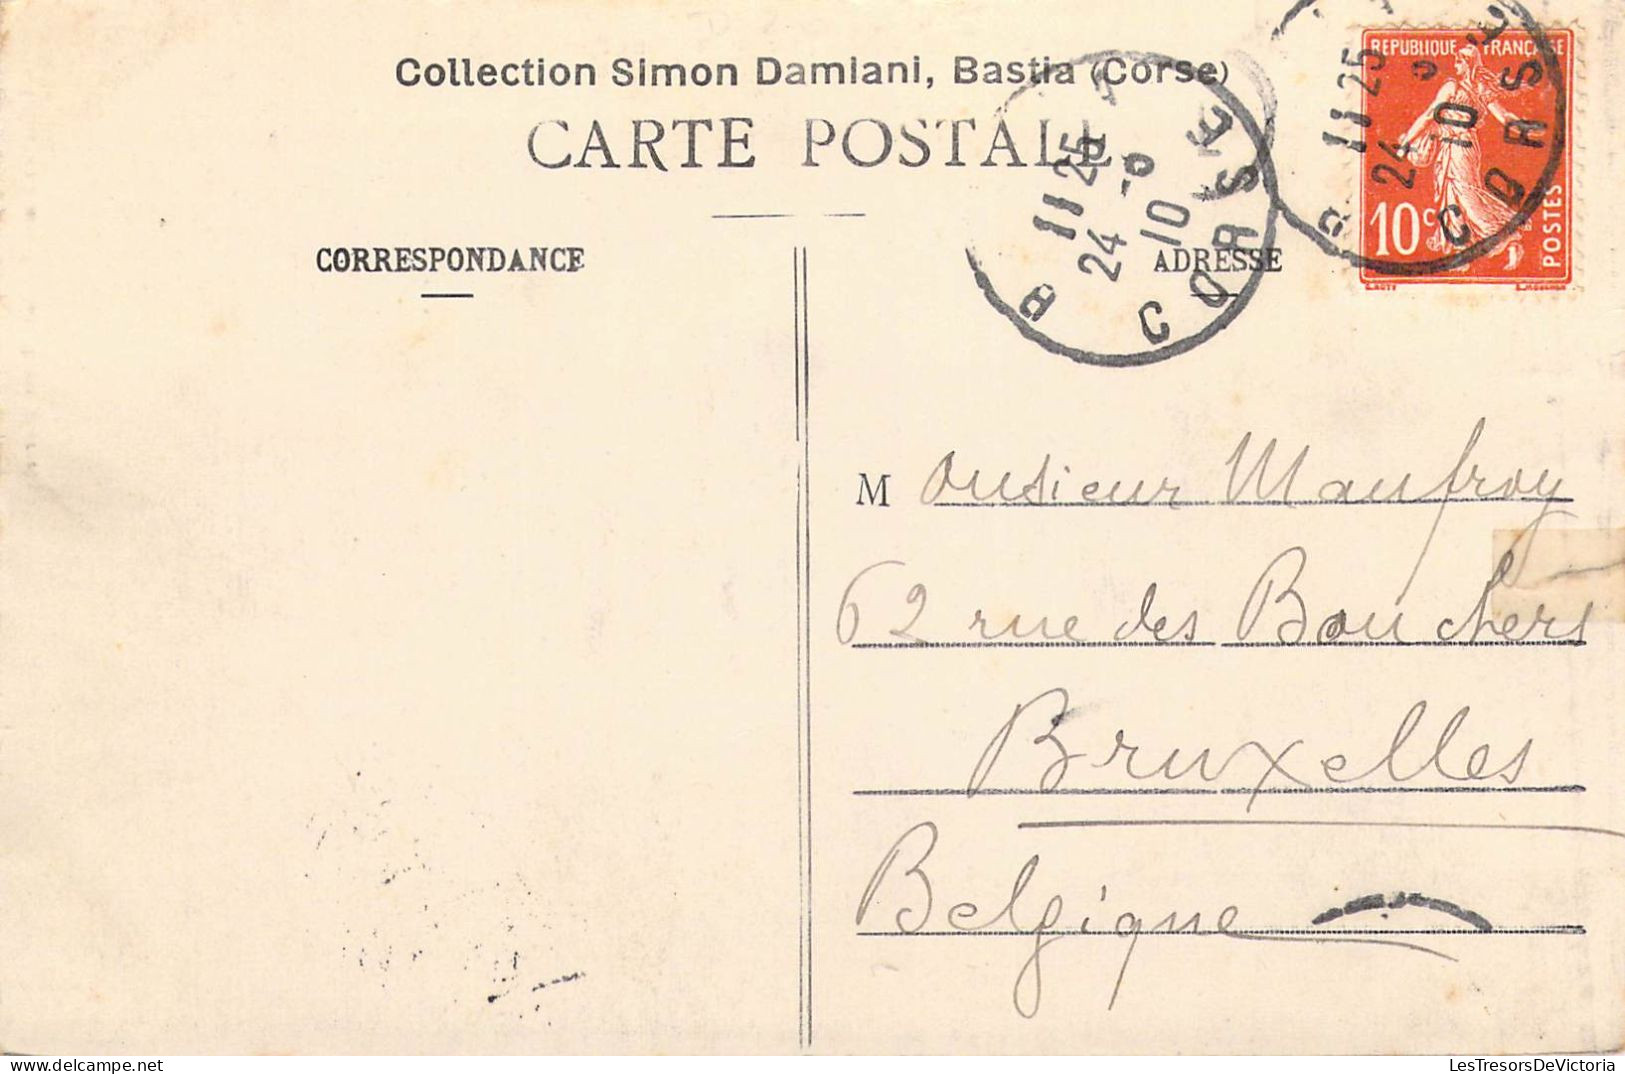 Collection Simon Damiani, Bastia (Corse)
CARTE POSTALE
CORRESPONDANCE
ADRESSE
11 25
24 - 9
10
CORSE
REPUBLIQUE FRANÇAISE
10c
POSTES
11 25
24 9
10
CORSE
Monsieur Manfroy
62 rue des Bouchers
Bruxelles
Belgique
LesTresorsDeVictoria